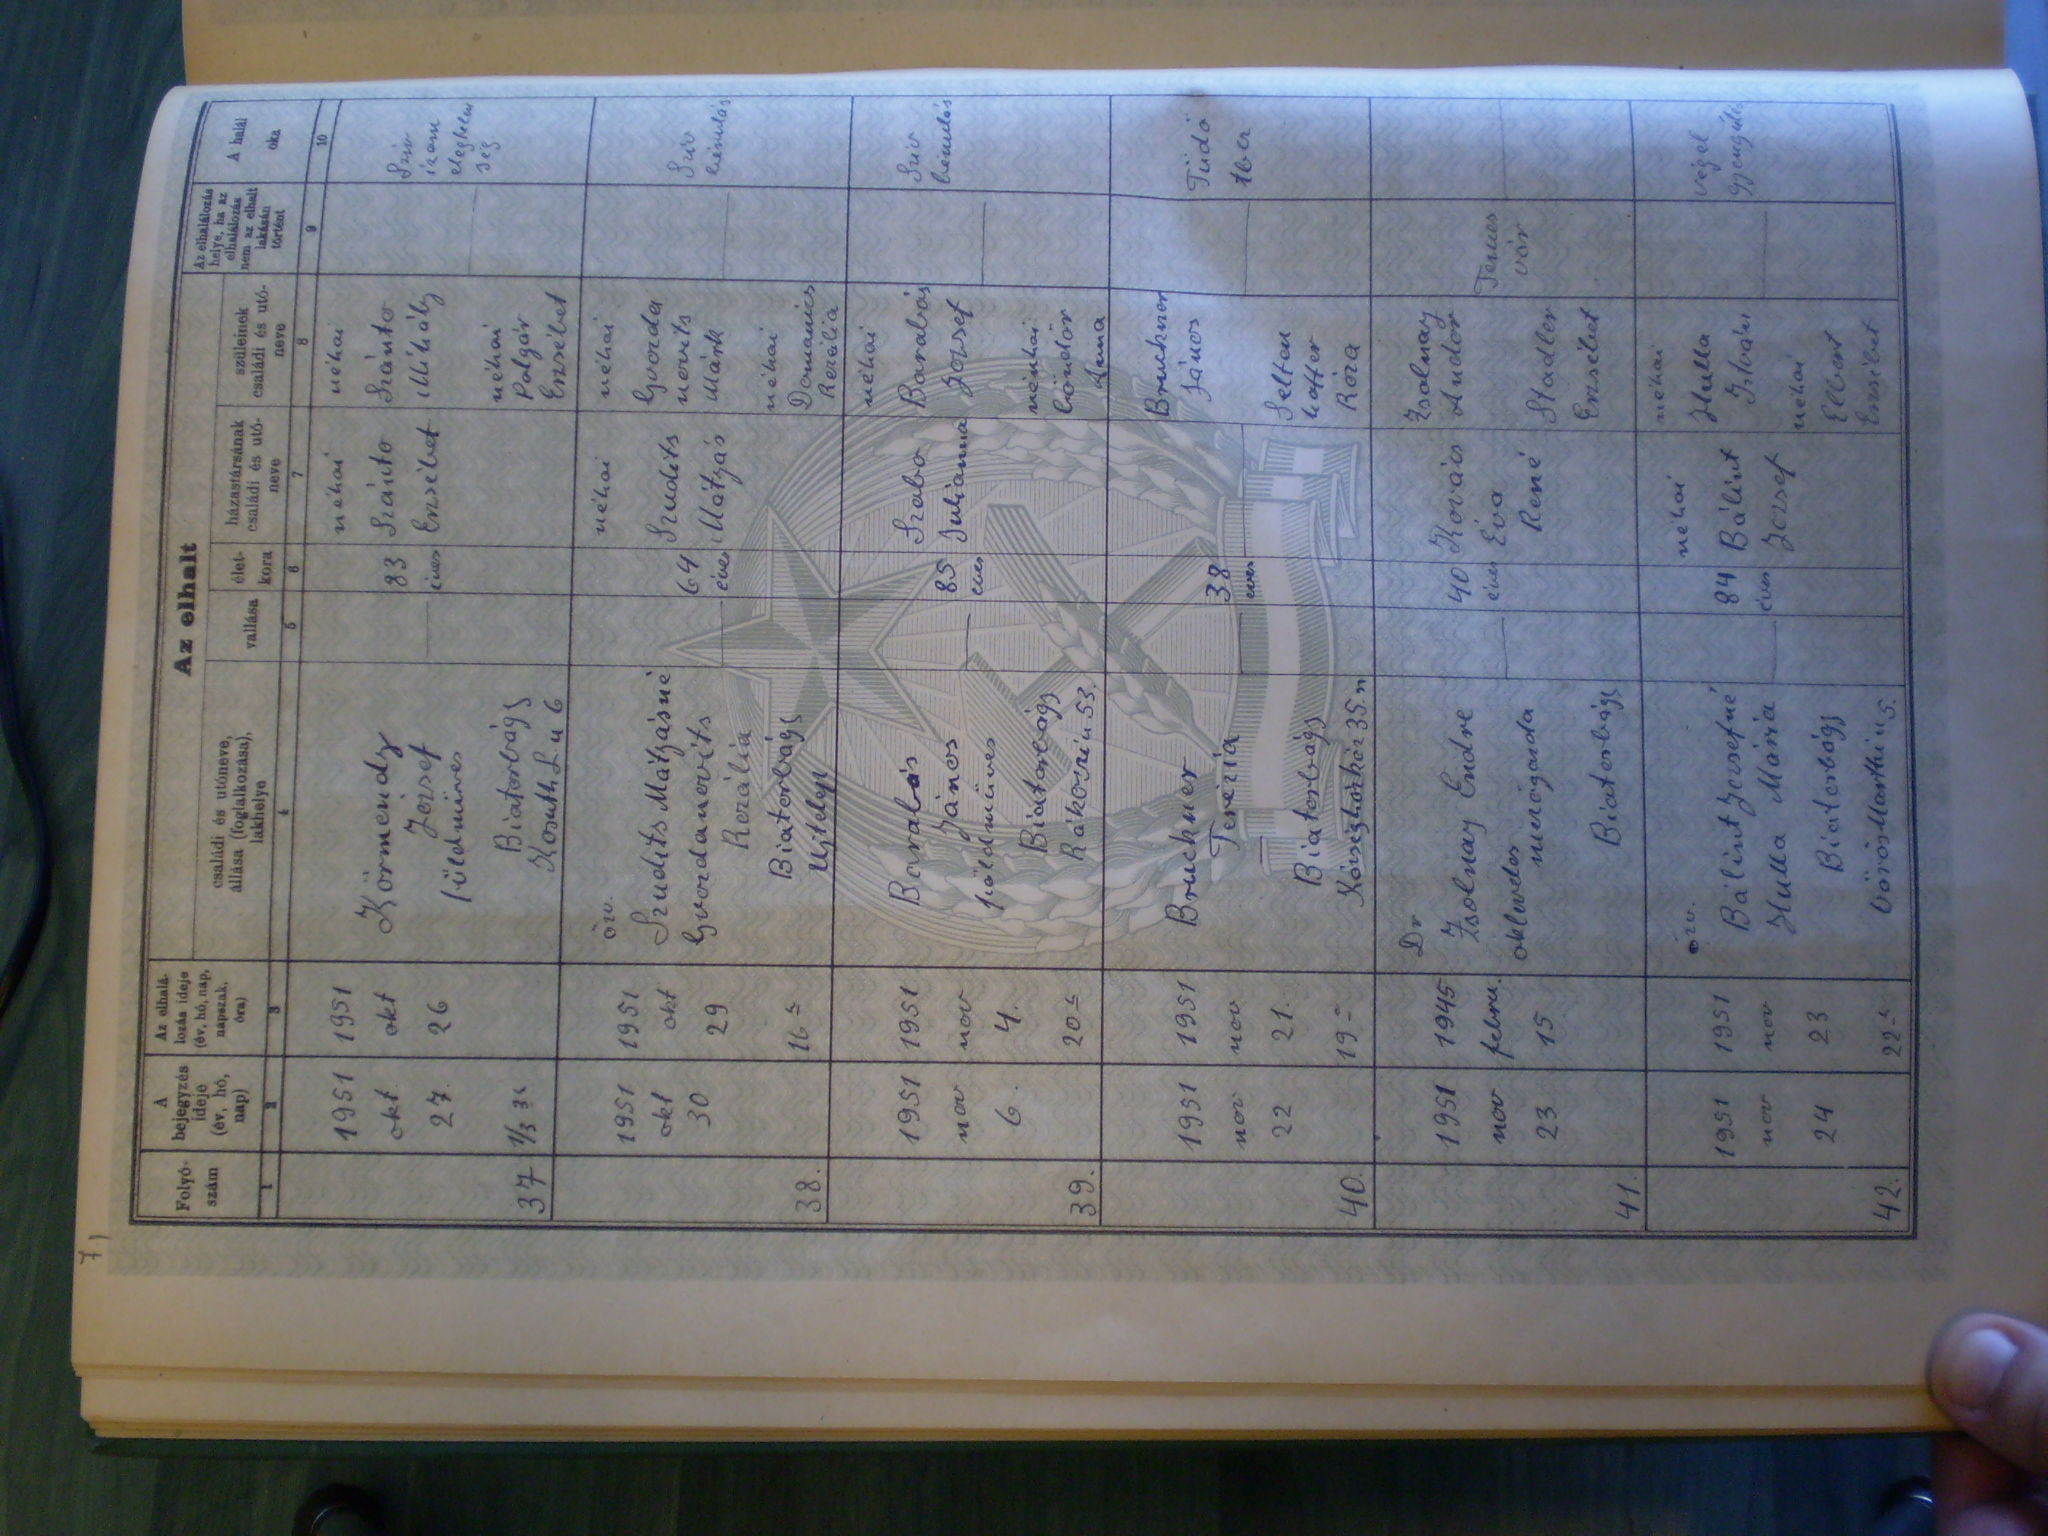 7)
Az elhalt
Folyó-
szám
A
bejegyzés
ideje
(év, hó,
nap)
Az elhalá-
lozás ideje
(év, hó, nap,
napszak,
óra)
családi és utóneve,
állása (foglalkozása),
lakhelye
vallása
élet-
kora
házastársának
családi és utó-
neve
szüleinek
családi és utó-
neve
Az elhalálozás
helye, ha az
elhalálozás
nem az elhalt
lakásán
történt
A halál
oka
1
2
3
4
5
6
7
8
9
10
37
1951
okt
27.
1951
okt
26
Körmendy
József
földműves
Biatorbágy
Kosuth L u 6
83
éves
néhai
Szántó
Erzsébet
néhai
Szántó
Mihály
néhai
Polgár
Erzsébet
Szív
izom
elégtelen
ség
38.
1951
okt
30
1951
okt
29
16
özv.
Szudits Mátyásné
Gvordanovits
Rozália
Biatorbágy
Ujtelep
64
éves
néhai
Szudits
Mátyás
néhai
Gvorda
novits
Márk
néhai
Rozália
Szív
bénulás
39.
1951
nov
6.
1951
nov
4.
20
Barabás
János
földműves
Biatorbágy
Rákosi u 53.
85
éves
Szabó
Julianna
néhai
Barabás
József
néhai
Anna
Szív
bénulás
40.
1951
nov
22
1951
nov
21.
19
Bruckner
Terézia
Biatorbágy
35.
38
éves
Bruckner
János
Selten
hoffer
Róza
Tüdő
tbc
41.
1951
nov
23
1945
febru.
15
Dr
Zsolnay Endre
okleveles
mérőgazda
Biatorbágy
40
éves
Kovács
Éva
René
Zsolnay
Andor
Stadler
Erzsébet
Temes
vár
42.
1951
nov
24
1951
nov
23
22
özv.
Bálint Józsefné
Hulla Mária
Biatorbágy
Vörösmarthi u 5.
84
éves
néhai
Bálint
József
néhai
Hulla
István
néhai
Erzsébet
végel
gyengülés